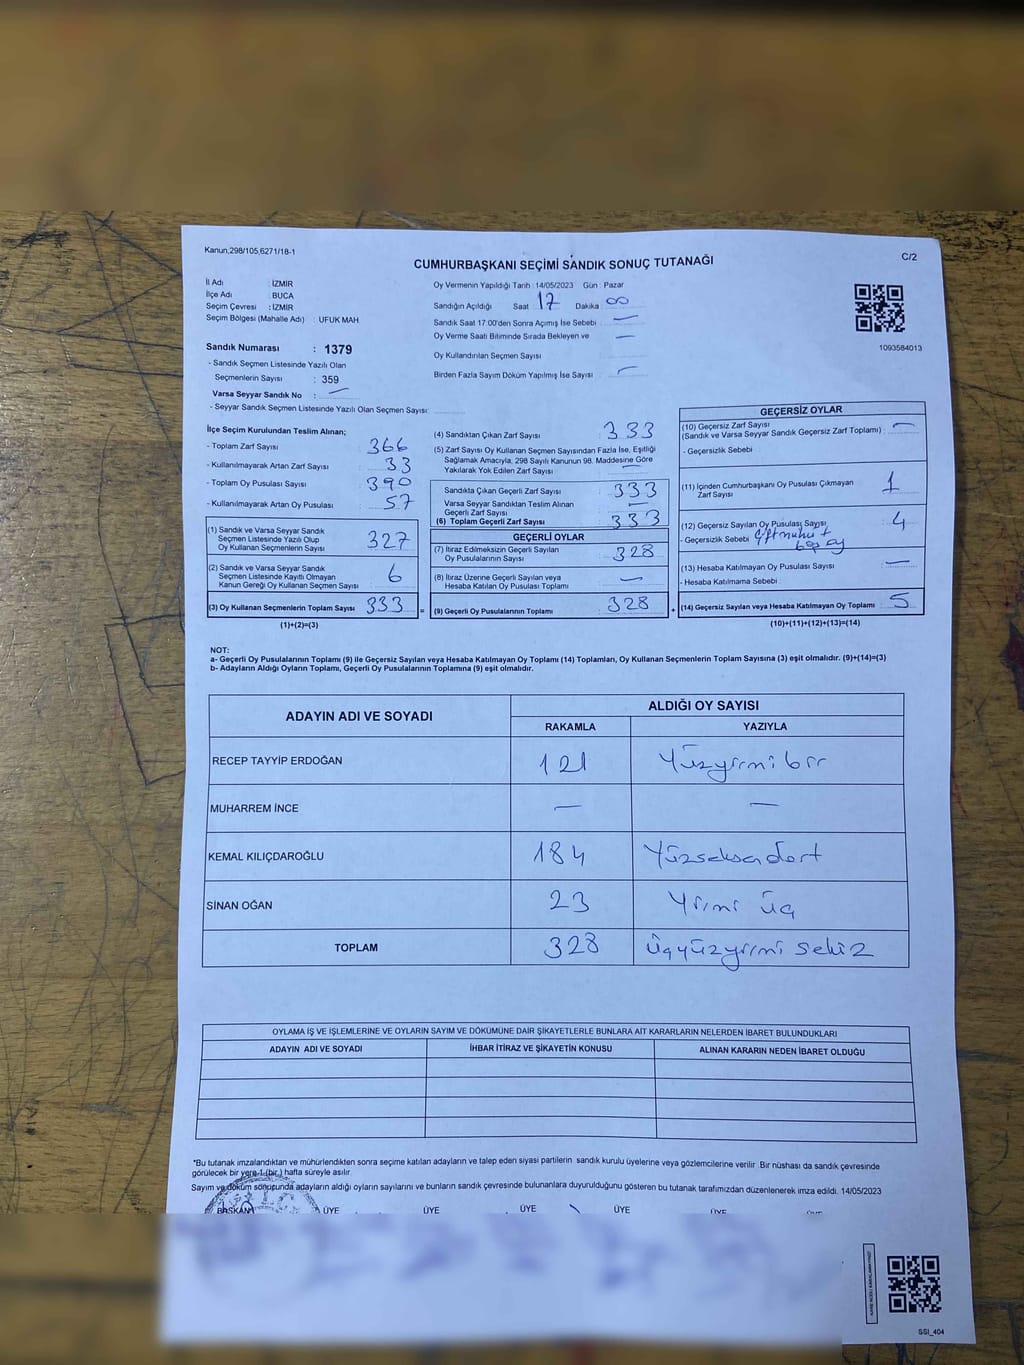 Kanun,298/105,6271/18-1
C/2
CUMHURBAŞKANI SEÇİMİ SANDIK SONUÇ TUTANAĞI
İl Adı : İZMİR
İlçe Adı : BUCA
Seçim Çevresi : İZMİR
Seçim Bölgesi (Mahalle Adı) : UFUK MAH
Sandık Numarası : 1379
- Sandık Seçmen Listesinde Yazılı Olan
Seçmenlerin Sayısı : 359
Varsa Seyyar Sandık No : —
- Seyyar Sandık Seçmen Listesinde Yazılı Olan Seçmen Sayısı:
Oy Vermenin Yapıldığı Tarih : 14/05/2023 Gün : Pazar
Sandığın Açıldığı Saat 17 Dakika 00
Sandık Saat 17:00'den Sonra Açımış İse Sebebi —
Oy Verme Saati Bitiminde Sırada Bekleyen ve —
Oy Kullandırılan Seçmen Sayısı
Birden Fazla Sayım Döküm Yapılmış İse Sayısı —
1093584013
İlçe Seçim Kurulundan Teslim Alınan;
- Toplam Zarf Sayısı 366
- Kullanılmayarak Artan Zarf Sayısı 33
- Toplam Oy Pusulası Sayısı 390
- Kullanılmayarak Artan Oy Pusulası 57
(1) Sandık ve Varsa Seyyar Sandık
Seçmen Listesinde Yazılı Olup
Oy Kullanan Seçmenlerin Sayısı 327
(2) Sandık ve Varsa Seyyar Sandık
Seçmen Listesinde Kayıtlı Olmayan
Kanun Gereği Oy Kullanan Seçmen Sayısı 6
(3) Oy Kullanan Seçmenlerin Toplam Sayısı 333 =
(1)+(2)=(3)
(4) Sandıktan Çıkan Zarf Sayısı 333
(5) Zarf Sayısı Oy Kullanan Seçmen Sayısından Fazla İse, Eşitliği
Sağlamak Amacıyla, 298 Sayılı Kanunun 98. Maddesine Göre
Yakılarak Yok Edilen Zarf Sayısı —
Sandıkta Çıkan Geçerli Zarf Sayısı 333
Varsa Seyyar Sandıktan Teslim Alınan
Geçerli Zarf Sayısı —
(6) Toplam Geçerli Zarf Sayısı 333
GEÇERLİ OYLAR
(7) İtiraz Edilmeksizin Geçerli Sayılan
Oy Pusulalarının Sayısı 328
(8) İtiraz Üzerine Geçerli Sayılan veya
Hesaba Katılan Oy Pusulası Toplamı —
(9) Geçerli Oy Pusulalarının Toplamı 328 +
GEÇERSİZ OYLAR
(10) Geçersiz Zarf Sayısı
(Sandık ve Varsa Seyyar Sandık Geçersiz Zarf Toplamı) : —
- Geçersizlik Sebebi :
(11) İçinden Cumhurbaşkanı Oy Pusulası Çıkmayan
Zarf Sayısı 1
(12) Geçersiz Sayılan Oy Pusulası Sayısı 4
- Geçersizlik Sebebi Çift mühür +
boş oy
(13) Hesaba Katılmayan Oy Pusulası Sayısı —
- Hesaba Katılmama Sebebi :
(14) Geçersiz Sayılan veya Hesaba Katılmayan Oy Toplamı 5
(10)+(11)+(12)+(13)=(14)
NOT:
a- Geçerli Oy Pusulalarının Toplamı (9) ile Geçersiz Sayılan veya Hesaba Katılmayan Oy Toplamı (14) Toplamları, Oy Kullanan Seçmenlerin Toplam Sayısına (3) eşit olmalıdır. (9)+(14)=(3)
b- Adayların Aldığı Oyların Toplamı, Geçerli Oy Pusulalarının Toplamına (9) eşit olmalıdır.
ADAYIN ADI VE SOYADI ALDIĞI OY SAYISI
RAKAMLA YAZIYLA
RECEP TAYYİP ERDOĞAN 121 Yüzyirmi bir
MUHARREM İNCE — —
KEMAL KILIÇDAROĞLU 184 Yüzseksendört
SİNAN OĞAN 23 Yirmi üç
TOPLAM 328 Üçyüzyirmi sekiz
OYLAMA İŞ VE İŞLEMLERİNE VE OYLARIN SAYIM VE DÖKÜMÜNE DAİR ŞİKAYETLERLE BUNLARA AİT KARARLARIN NELERDEN İBARET BULUNDUKLARI
ADAYIN ADI VE SOYADI İHBAR İTİRAZ VE ŞİKAYETİN KONUSU ALINAN KARARIN NEDEN İBARET OLDUĞU
*Bu tutanak imzalandıktan ve mühürlendikten sonra seçime katılan adayların ve talep eden siyasi partilerin sandık kurulu üyelerine veya gözlemcilerine verilir. Bir nüshası da sandık çevresinde
görülecek bir yere 1 (bir) hafta süreyle asılır.
Sayım ve döküm sonucunda adayların aldığı oyların sayılarını ve bunların sandık çevresinde bulunanlara duyurulduğunu gösteren bu tutanak tarafımızdan düzenlenerek imza edildi. 14/05/2023
BAŞKAN ÜYE ÜYE ÜYE ÜYE ÜYE
SSI_404